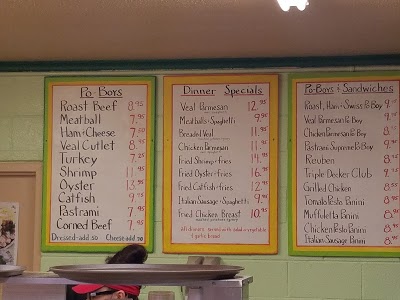 Po-Boys
Roast Beef 8.95
Meatball 7.95
Ham & Cheese 7.50
Veal Cutlet 8.95
Turkey 7.25
Shrimp 11.95
Oyster 13.95
Catfish 9.95
Pastrami 7.95
Corned Beef 7.95
Dressed-add 50 Cheese-add 70
Dinner Specials
Veal Parmesan 12.95
Meatballs & Spaghetti 9.95
Breaded Veal 11.95
Chicken Parmesan 11.95
Fried Shrimp & fries 14.95
Fried Oyster & fries 16.95
Fried Catfish & fries 12.95
Italian Sausage & Spaghetti 9.95
Fried Chicken Breast 10.95
All dinners served with salad or vegetable
& garlic bread
Po-Boys & Sandwiches
Roast, Ham & Swiss Po Boy
Veal Parmesan Po Boy
Chicken Parmesan Po Boy
Pastrami Supreme Po Boy
Reuben
Triple Decker Club
Grilled Chicken
Tomato Pesto Panini
Muffuletta Panini
Chicken Pesto Panini
Italian Sausage Panini